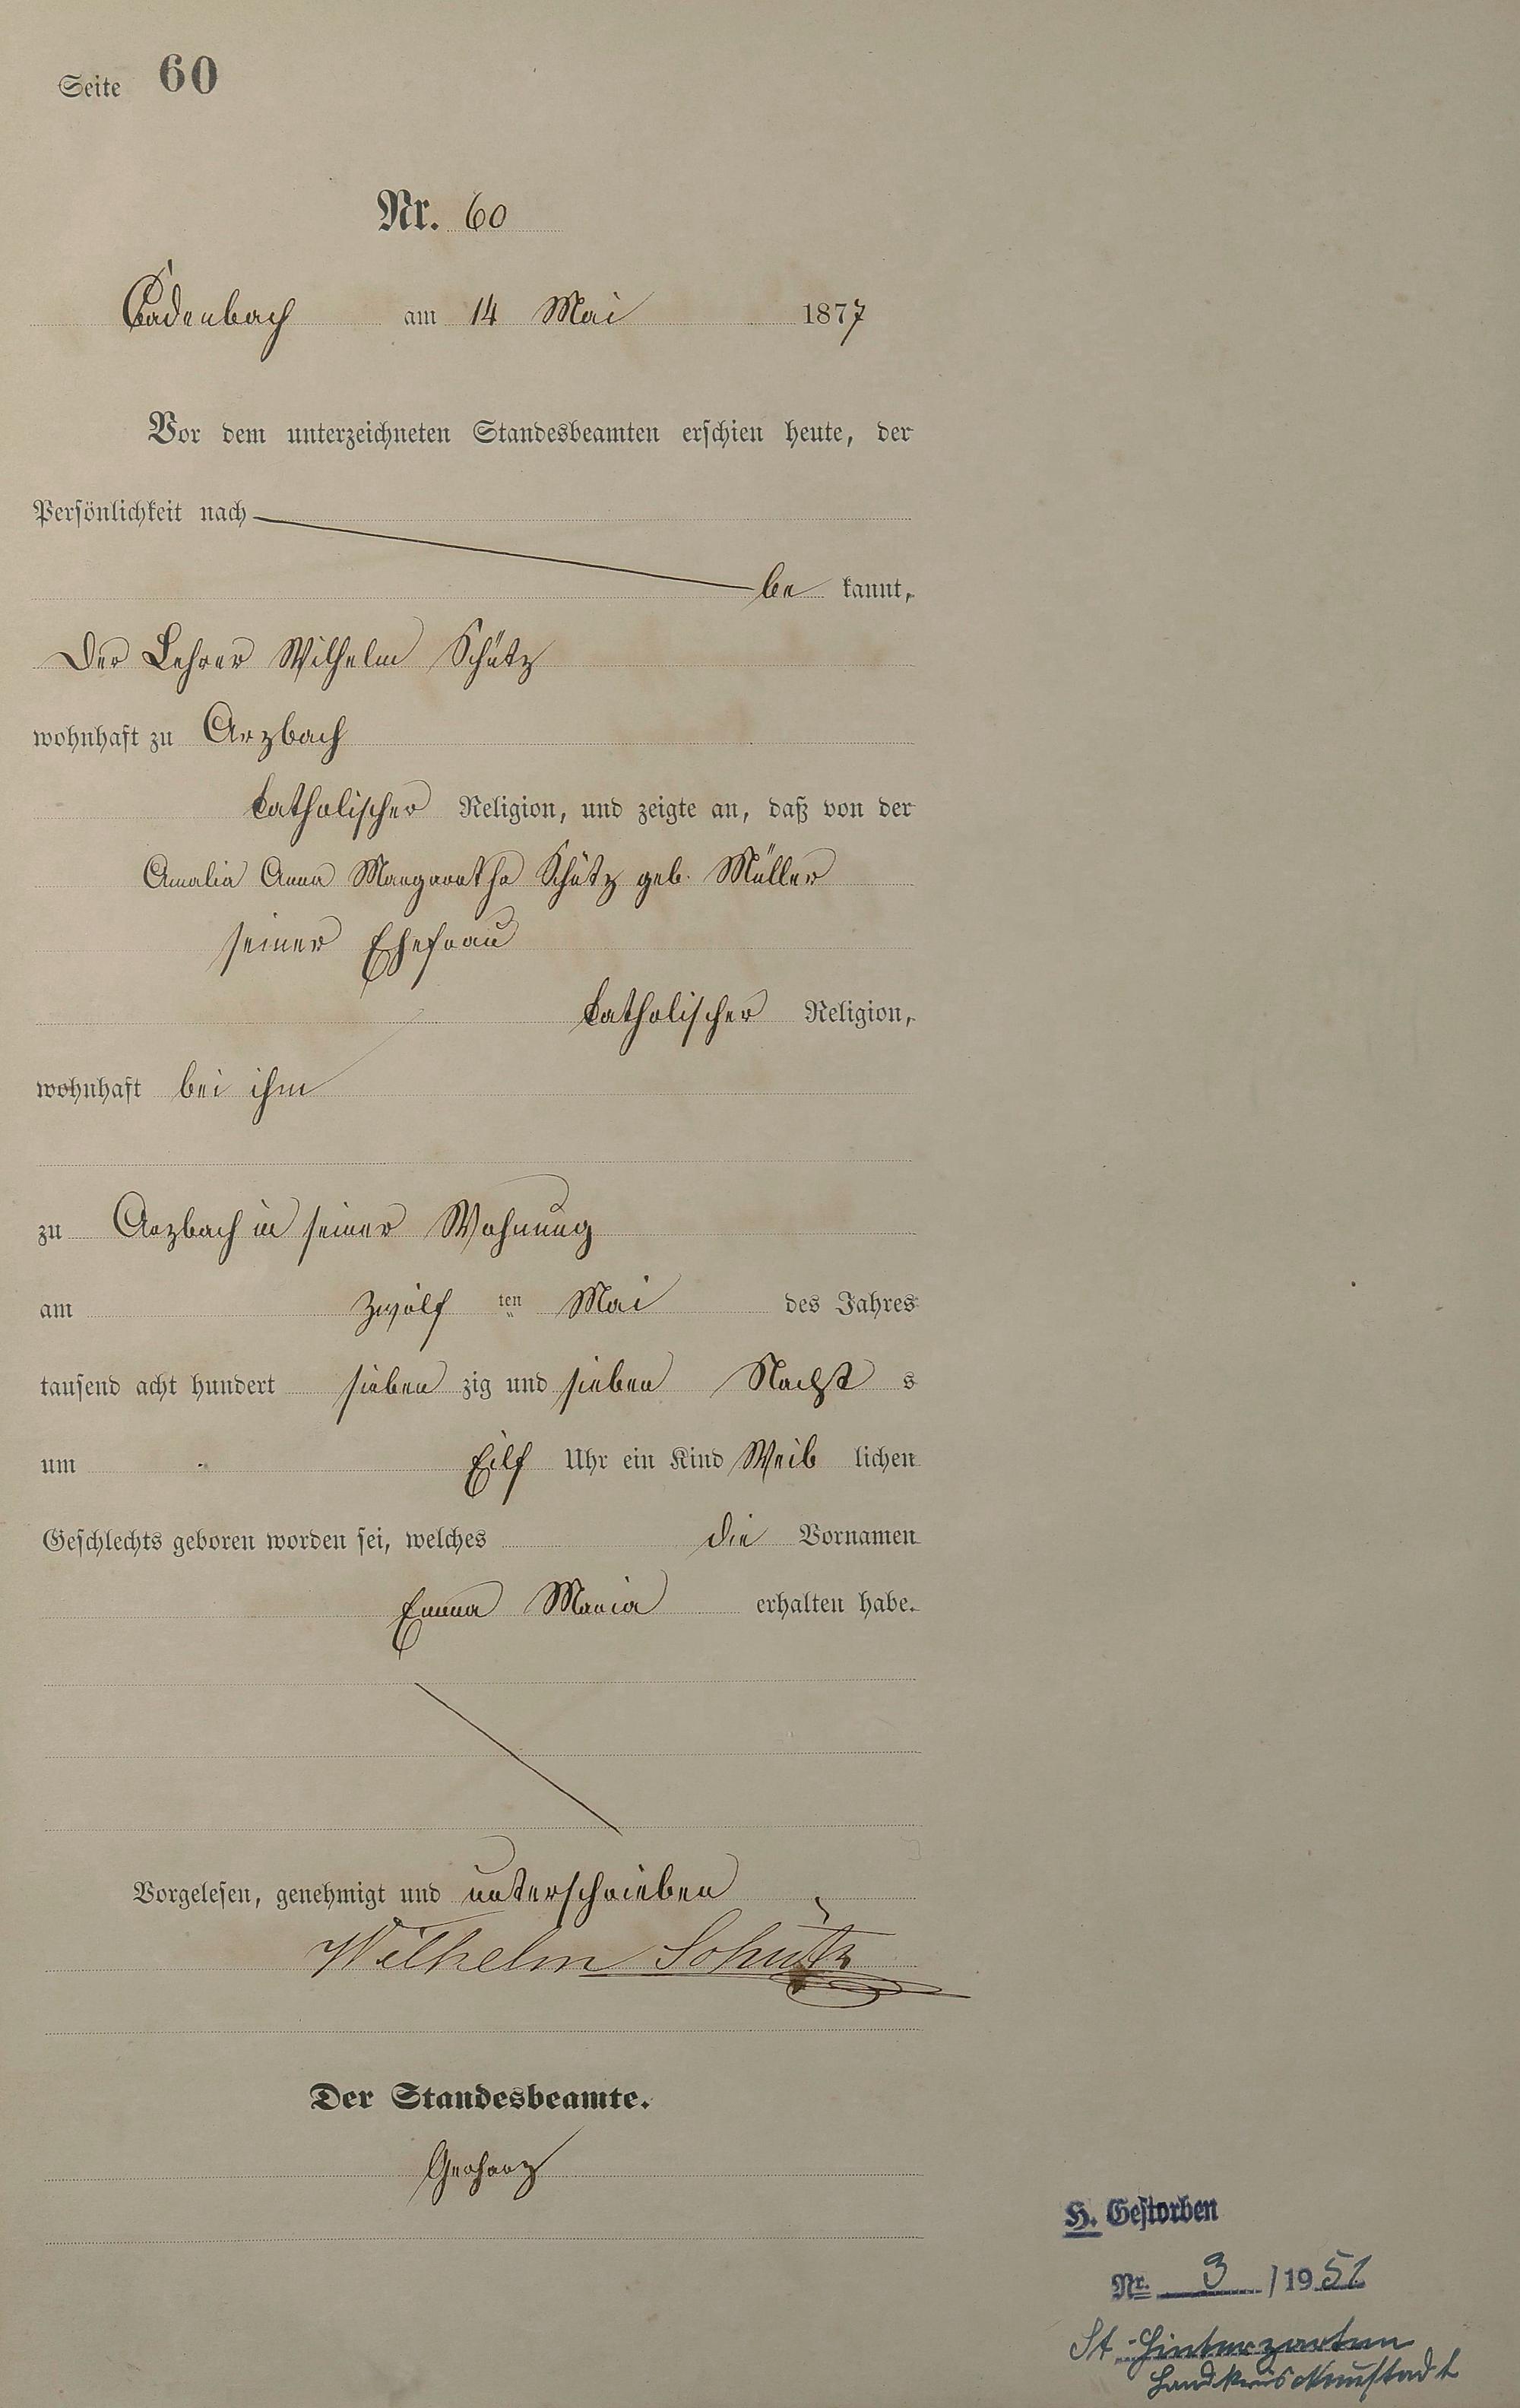 Seite 60
Nr. 60
Cadenbach am 14 Mai 1877
Vor dem unterzeichneten Standesbeamten erschien heute, der
Persönlichkeit nach
be kannt,
der Lehrer Wilhelm Schütz
wohnhaft zu Arzbach
katholischer Religion, und zeigte an, daß von der
Amalia Anna Margaretha Schütz geb. Müller
seiner Ehefrau
katholischer Religion,
wohnhaft bei ihm
zu Arzbach in seiner Wohnung
am zwölf ten Mai des Jahres
tausend acht hundert sieben zig und sieben Nacht s
um Eilf Uhr ein Kind Weib lichen
Geschlechts geboren worden sei, welches die Vornamen
Emma Maria erhalten habe.
Vorgelesen, genehmigt und unterschrieben
Wilhelm Schütz
Der Standesbeamte.
Gerharz
H. Gestorben
Nr. 3 / 1951
St. Hinterzarten
Landkreis Neustadt